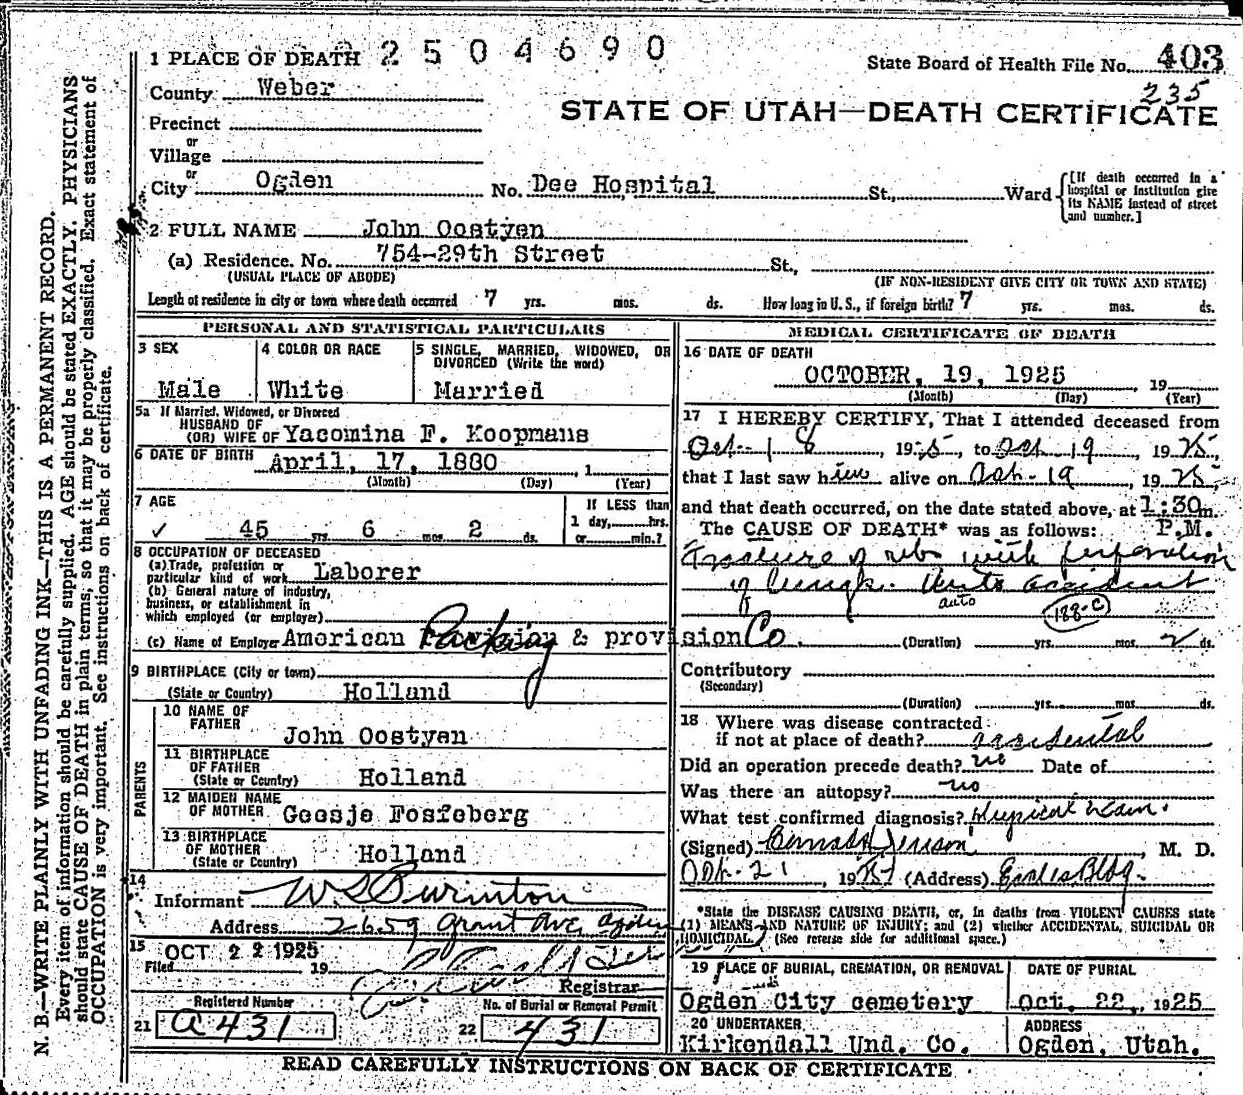 2504690
1 PLACE OF DEATH
State Board of Health File No. 403
235
County Weber
STATE OF UTAH—DEATH CERTIFICATE
Precinct
or
Village
or
City Ogden No. Dee Hospital St., Ward
[If death occurred in a hospital or institution give its NAME instead of street and number.]
2 FULL NAME John Oostyen
(a) Residence. No. 754-29th Street St.,
(USUAL PLACE OF ABODE) (IF NON-RESIDENT GIVE CITY OR TOWN AND STATE)
Length of residence in city or town where death occurred 7 yrs. mos. ds. How long in U. S., if foreign birth? 7 yrs. mos. ds.
PERSONAL AND STATISTICAL PARTICULARS
3 SEX
Male
4 COLOR OR RACE
White
5 SINGLE, MARRIED, WIDOWED, OR
DIVORCED (Write the word)
Married
5a If Married, Widowed, or Divorced
HUSBAND OF
(OR) WIFE OF Yacomina F. Koopmans
6 DATE OF BIRTH April, 17, 1880, 1
(Month) (Day) (Year)
7 AGE
✓ 45 yrs 6 mos 2 ds.
If LESS than
1 day, hrs.
or min.?
8 OCCUPATION OF DECEASED
(a) Trade, profession or
particular kind of work Laborer
(b) General nature of industry,
business, or establishment in
which employed (or employer)
(c) Name of Employer American Packing & provision Co.
9 BIRTHPLACE (City or town)
(State or Country) Holland
PARENTS
10 NAME OF
FATHER John Oostyen
11 BIRTHPLACE
OF FATHER
(State or Country) Holland
12 MAIDEN NAME
OF MOTHER Geesje Fosfeberg
13 BIRTHPLACE
OF MOTHER
(State or Country) Holland
14
Informant W S Purinton
Address 2659 Grant Ave, Ogden
15 OCT 22 1925
Filed 19
Registrar
Registered Number
21 a431
No. of Burial or Removal Permit
22 431
MEDICAL CERTIFICATE OF DEATH
16 DATE OF DEATH
OCTOBER, 19, 1925, 19
(Month) (Day) (Year)
17 I HEREBY CERTIFY, That I attended deceased from
Oct. 18, 1925, to Oct. 19, 1925,
that I last saw him alive on Oct. 19, 1925,
and that death occurred, on the date stated above, at 1:30 m.
P.M.
The CAUSE OF DEATH* was as follows:
Fracture of ribs with perforation
of lungs. Auto accident
auto 188-c
(Duration) yrs. mos. 2 ds.
Contributory
(Secondary)
(Duration) yrs. mos. ds.
18 Where was disease contracted
if not at place of death? accidental
Did an operation precede death? no Date of
Was there an autopsy? no
What test confirmed diagnosis? Physical exam.
(Signed) Jenson, M. D.
Oct. 21, 19 25 (Address) Eccles Bldg.
*State the DISEASE CAUSING DEATH, or, in deaths from VIOLENT CAUSES state
(1) MEANS AND NATURE OF INJURY; and (2) whether ACCIDENTAL, SUICIDAL OR
HOMICIDAL. (See reverse side for additional space.)
19 PLACE OF BURIAL, CREMATION, OR REMOVAL
Ogden City cemetery
DATE OF BURIAL
Oct. 22, 1925
20 UNDERTAKER
Kirkendall Und. Co.
ADDRESS
Ogden, Utah.
READ CAREFULLY INSTRUCTIONS ON BACK OF CERTIFICATE
N. B.—WRITE PLAINLY WITH UNFADING INK—THIS IS A PERMANENT RECORD.
Every item of information should be carefully supplied. AGE should be stated EXACTLY. PHYSICIANS
should state CAUSE OF DEATH in plain terms, so that it may be properly classified. Exact statement of
OCCUPATION is very important. See instructions on back of certificate.